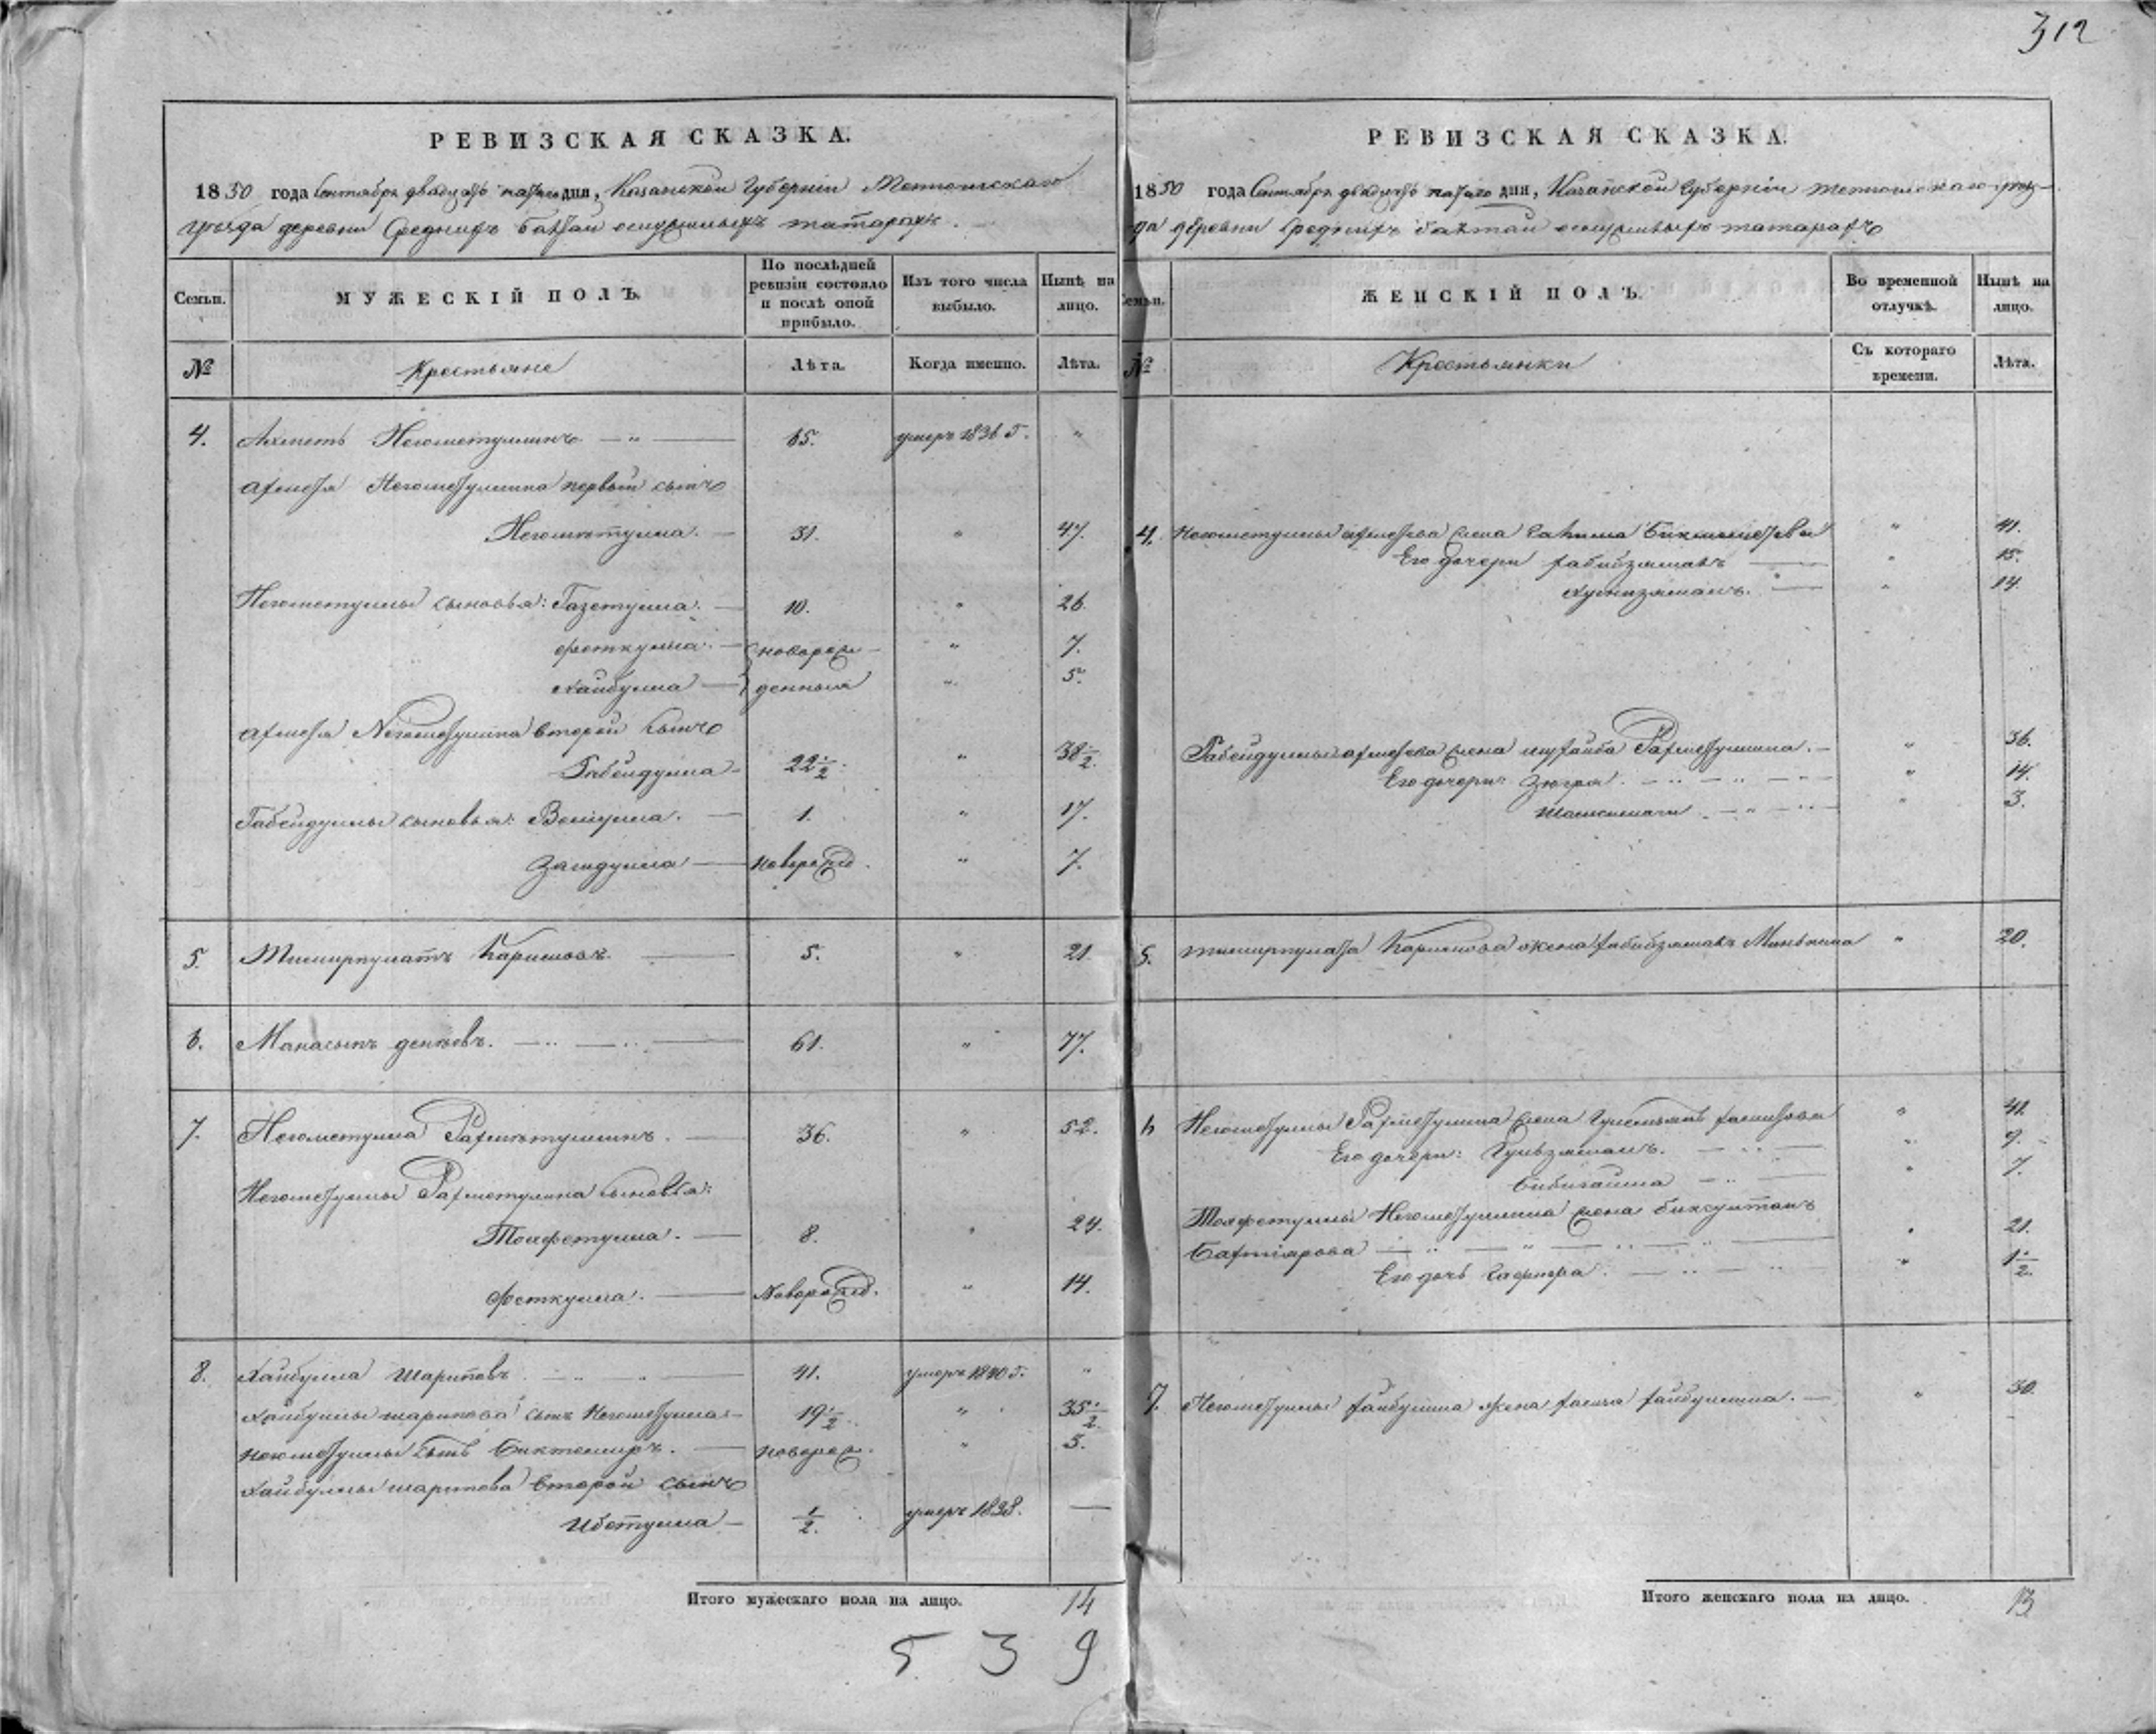 312
РЕВИЗСКАЯ СКАЗКА.
1850 года Сентября двадцать пятаго дня, Казанской Губернiи Тетюшскаго
уѣзда деревни Среднихъ Балтай татаръ
Семьи.
МУЖЕСКIЙ ПОЛЪ.
По послѣдней ревизiи состояло и послѣ оной прибыло.
Изъ того числа выбыло.
Нынѣ на лицо.
№
Крестьяне
Лѣта.
Когда именно.
Лѣта.
4. Ахметь Негометуллинъ — 65. умеръ 1836 г. "
Ахметя Негометуллина первый сынъ
Негометулла. — 31. " 47.
Негометуллы сыновья: Газетулла. — 10. " 26
Феткулла. — новорож- " 7.
Хайбулла — денныя " 5.
Ахметя Негометуллина второй сынъ
Габейдулла — 22 1/2 " 38 1/2.
Габейдуллы сыновья: Велиулла. — 1. " 17.
Загидулла — новорожд. " 7.
5. Тимирпулатъ Каримовъ. — 5. " 21
6. Манасыпъ — 61. " 77.
7. Негометулла Рахметуллинъ. — 36. " 52.
Негометуллы Рахметуллина сыновья:
Тохфетулла. — 8. " 24.
Феткулла. — Новорожд. " 14.
8. Хайбулла Шариповъ — 41. умеръ 1840 г. "
Хайбуллы Шарипова сынъ Негометулла — 19 1/2 " 35 1/2.
Негометуллы сынъ Биктемиръ. — новорож. " 5.
Хайбуллы Шарипова второй сынъ
Ибетулла — 1/2. умеръ 1838. —
Итого мужескаго пола на лицо. 14
539
РЕВИЗСКАЯ СКАЗКА.
1850 года Сентября двадцать пятаго дня, Казанской Губернiи Тетюшскаго уѣз-
да деревни Среднихъ Балтай татаръ
Семьи.
ЖЕНСКIЙ ПОЛЪ.
Во временной отлучкѣ.
Нынѣ на лицо.
№
Крестьянки
Съ котораго времени.
Лѣта.
4. Негометуллы Ахметева жена Галима " 41.
Его дочери Хабибзямалъ — " 15.
Хуснизямалъ. — " 14.
Габейдуллы Ахметева жена Рахметуллина. — " 36.
Его дочери: Зюгра. — " 14.
— " 3.
5. Тимирпулата Каримова жена Хабибзямалъ " 20.
6 Негометуллы Рахметуллина жена " 41.
Его дочери: Гульзямалъ. — " 9.
Бибигайша — " 7.
Тохфетуллы Негометуллина жена Биксултанъ
Бахтiярова — " 21.
Его дочь — " 1 1/2.
7. Негометуллы Хайбуллина жена " 30.
Итого женскаго пола на лицо. 13